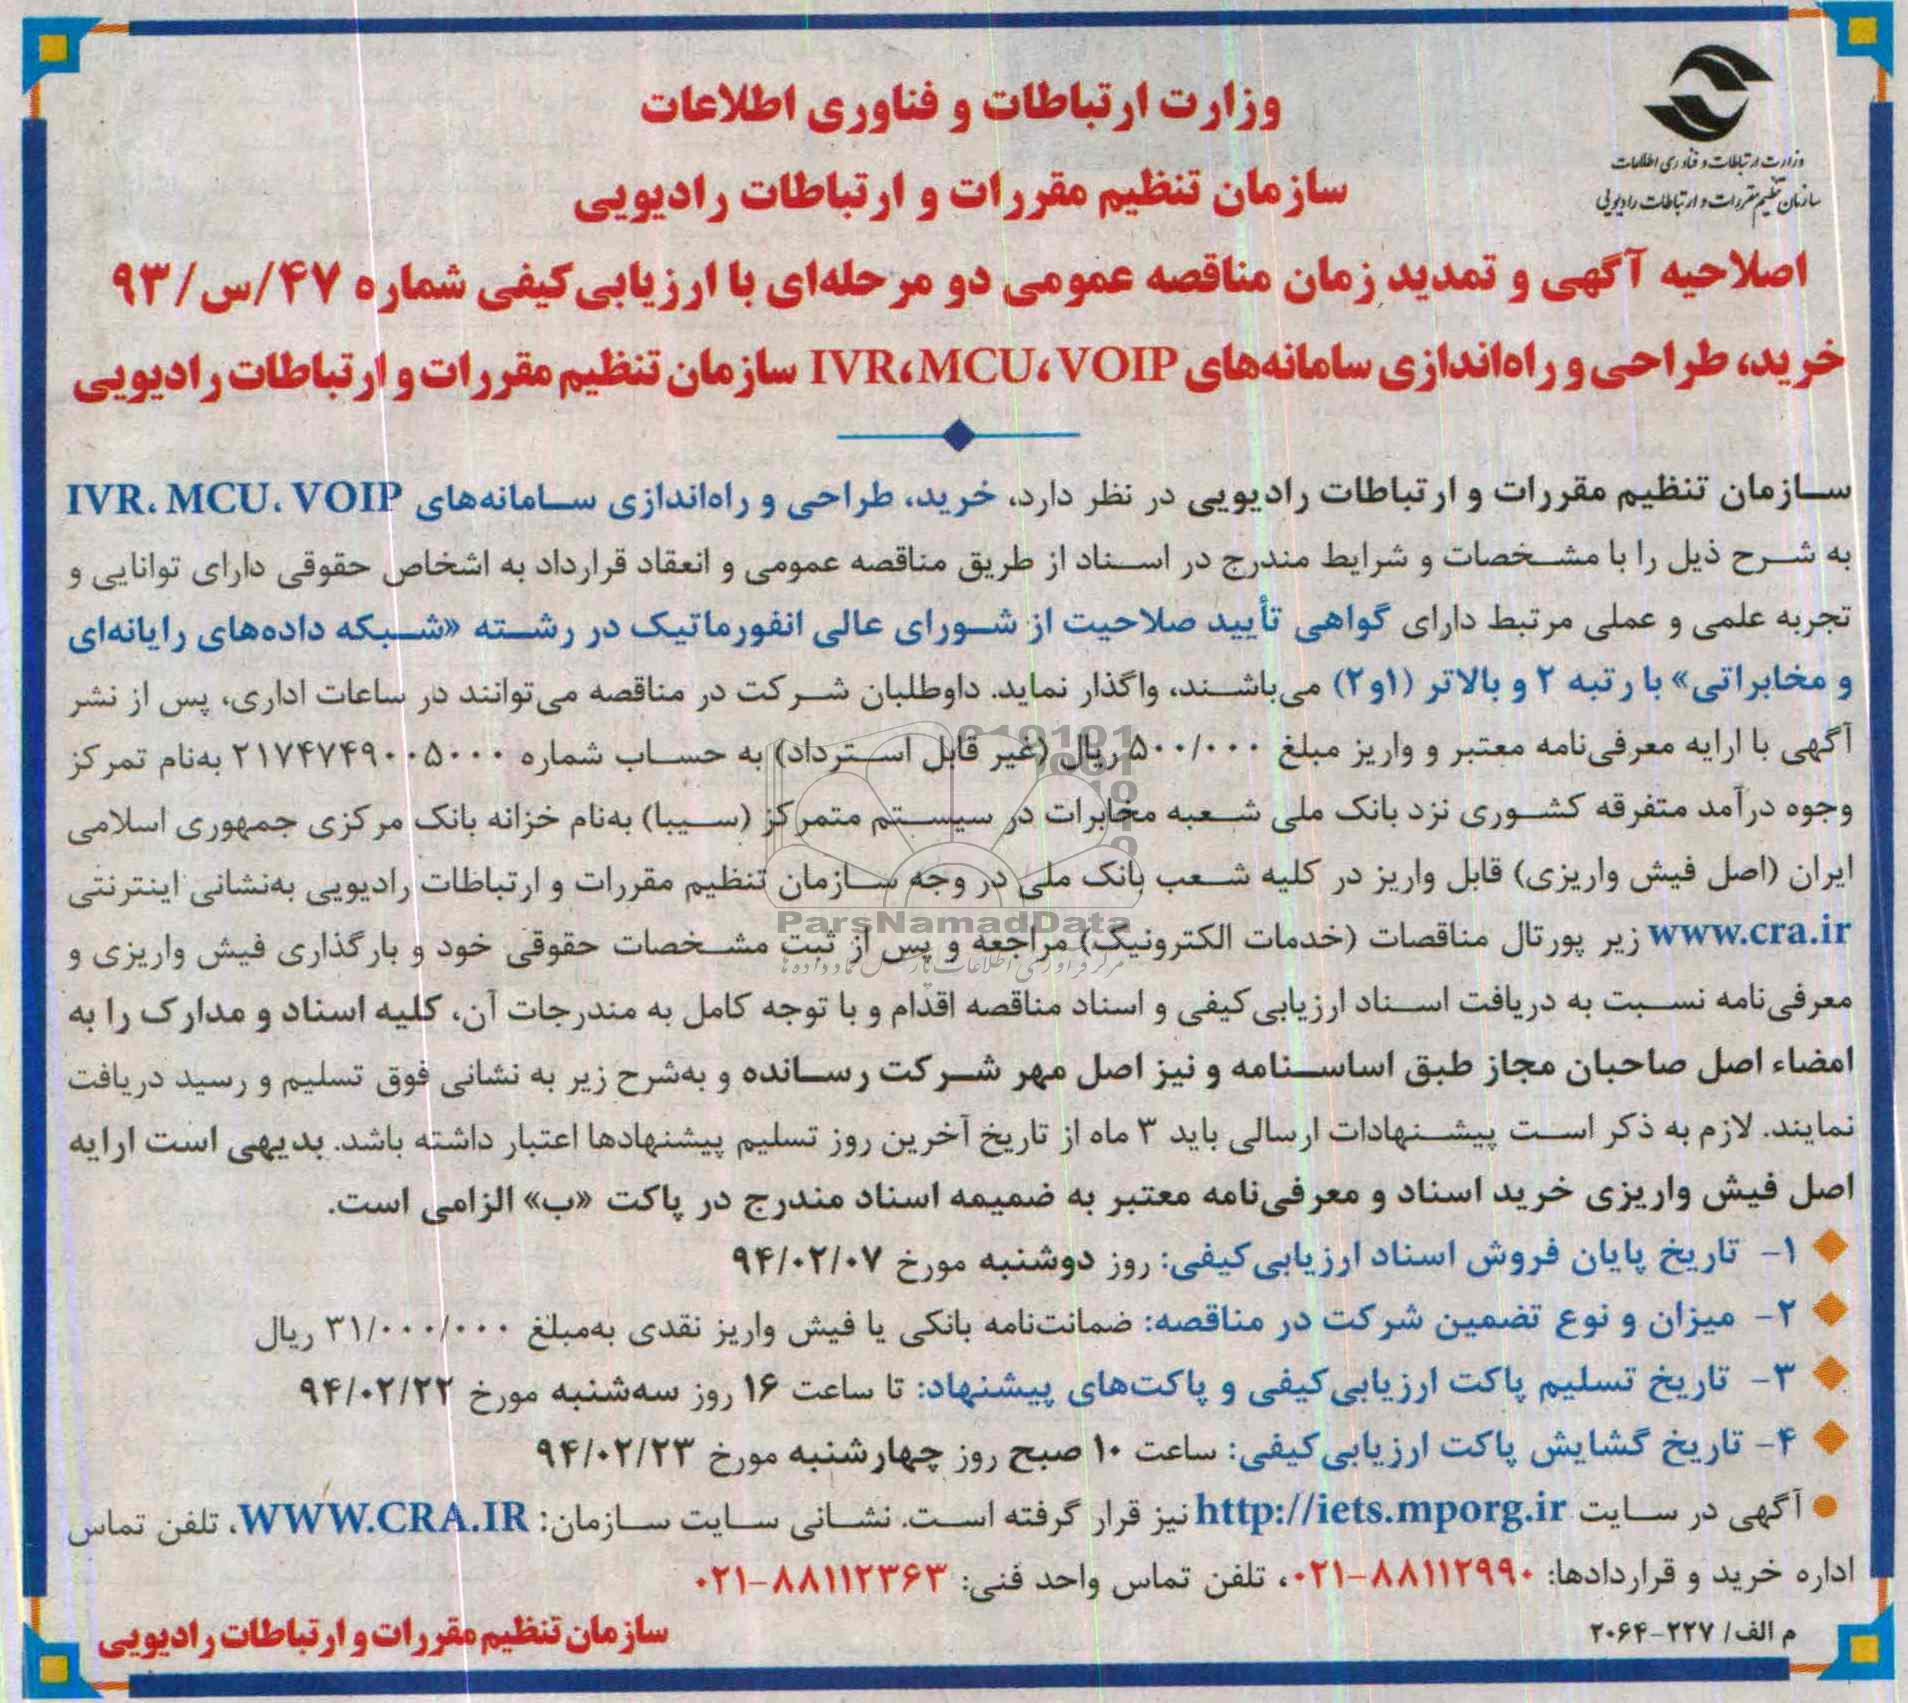 وزارت ارتباطات و فناوری اطلاعات
سازمان تنظیم مقررات و ارتباطات رادیویی
وزارت ارتباطات و فناوری اطلاعات
سازمان تنظیم مقررات و ارتباطات رادیویی
اصلاحیه آگهی و تمدید زمان مناقصه عمومی دو مرحله‌ای با ارزیابی کیفی شماره ۴۷/س/۹۳
خرید، طراحی و راه‌اندازی سامانه‌های IVR،MCU،VOIP سازمان تنظیم مقررات و ارتباطات رادیویی
سازمان تنظیم مقررات و ارتباطات رادیویی در نظر دارد، خرید، طراحی و راه‌اندازی سامانه‌های IVR، MCU، VOIP
به شرح ذیل را با مشخصات و شرایط مندرج در اسناد از طریق مناقصه عمومی و انعقاد قرارداد به اشخاص حقوقی دارای توانایی و
تجربه علمی و عملی مرتبط دارای گواهی تأیید صلاحیت از شورای عالی انفورماتیک در رشته «شبکه داده‌های رایانه‌ای
و مخابراتی» با رتبه ۲ و بالاتر (۱و۲) می‌باشند، واگذار نماید. داوطلبان شرکت در مناقصه می‌توانند در ساعات اداری، پس از نشر
آگهی با ارایه معرفی‌نامه معتبر و واریز مبلغ ۵۰۰/۰۰۰ ریال (غیر قابل استرداد) به حساب شماره ۲۱۷۴۷۴۹۰۰۵۰۰۰ به‌نام تمرکز
وجوه درآمد متفرقه کشوری نزد بانک ملی شعبه مخابرات در سیستم متمرکز (سیبا) به‌نام خزانه بانک مرکزی جمهوری اسلامی
ایران (اصل فیش واریزی) قابل واریز در کلیه شعب بانک ملی در وجه سازمان تنظیم مقررات و ارتباطات رادیویی به‌نشانی اینترنتی
www.cra.ir زیر پورتال مناقصات (خدمات الکترونیک) مراجعه و پس از ثبت مشخصات حقوقی خود و بارگذاری فیش واریزی و
معرفی‌نامه نسبت به دریافت اسناد ارزیابی کیفی و اسناد مناقصه اقدام و با توجه کامل به مندرجات آن، کلیه اسناد و مدارک را به
امضاء اصل صاحبان مجاز طبق اساسنامه و نیز اصل مهر شرکت رسانده و به‌شرح زیر به نشانی فوق تسلیم و رسید دریافت
نمایند. لازم به ذکر است پیشنهادات ارسالی باید ۳ ماه از تاریخ آخرین روز تسلیم پیشنهادها اعتبار داشته باشد. بدیهی است ارایه
اصل فیش واریزی خرید اسناد و معرفی‌نامه معتبر به ضمیمه اسناد مندرج در پاکت «ب» الزامی است.
۱- تاریخ پایان فروش اسناد ارزیابی کیفی: روز دوشنبه مورخ ۹۴/۰۲/۰۷
۲- میزان و نوع تضمین شرکت در مناقصه: ضمانت‌نامه بانکی یا فیش واریز نقدی به‌مبلغ ۳۱/۰۰۰/۰۰۰ ریال
۳- تاریخ تسلیم پاکت ارزیابی کیفی و پاکت‌های پیشنهاد: تا ساعت ۱۶ روز سه‌شنبه مورخ ۹۴/۰۲/۲۲
۴- تاریخ گشایش پاکت ارزیابی کیفی: ساعت ۱۰ صبح روز چهارشنبه مورخ ۹۴/۰۲/۲۳
آگهی در سایت http://iets.mporg.ir نیز قرار گرفته است. نشانی سایت سازمان: WWW.CRA.IR، تلفن تماس
اداره خرید و قراردادها: ۸۸۱۱۲۹۹۰-۰۲۱، تلفن تماس واحد فنی: ۸۸۱۱۲۳۶۳-۰۲۱
م الف/ ۲۲۷-۲۰۶۴
سازمان تنظیم مقررات و ارتباطات رادیویی
ParsNamadData